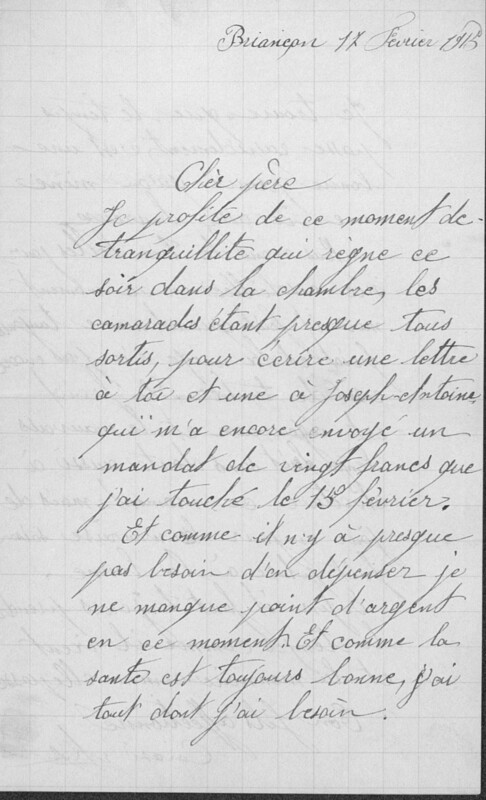 Briançon 17 Février 1915
Chèr père
Je profite de ce moment de
tranquillité qui règne ce
soir dans la chambre, les
camarades étant presque tous
sortis, pour écrire une lettre
à toi et une à Joseph-Antoine,
qui m'a encore envoyé un
mandat de vingt francs que
j'ai touché le 15 février.
Et comme il n'y à presque
pas besoin d'en dépenser je
ne manque point d'argent
en ce moment. Et comme la
santé est toujours bonne, j'ai
tout dont j'ai besoin.